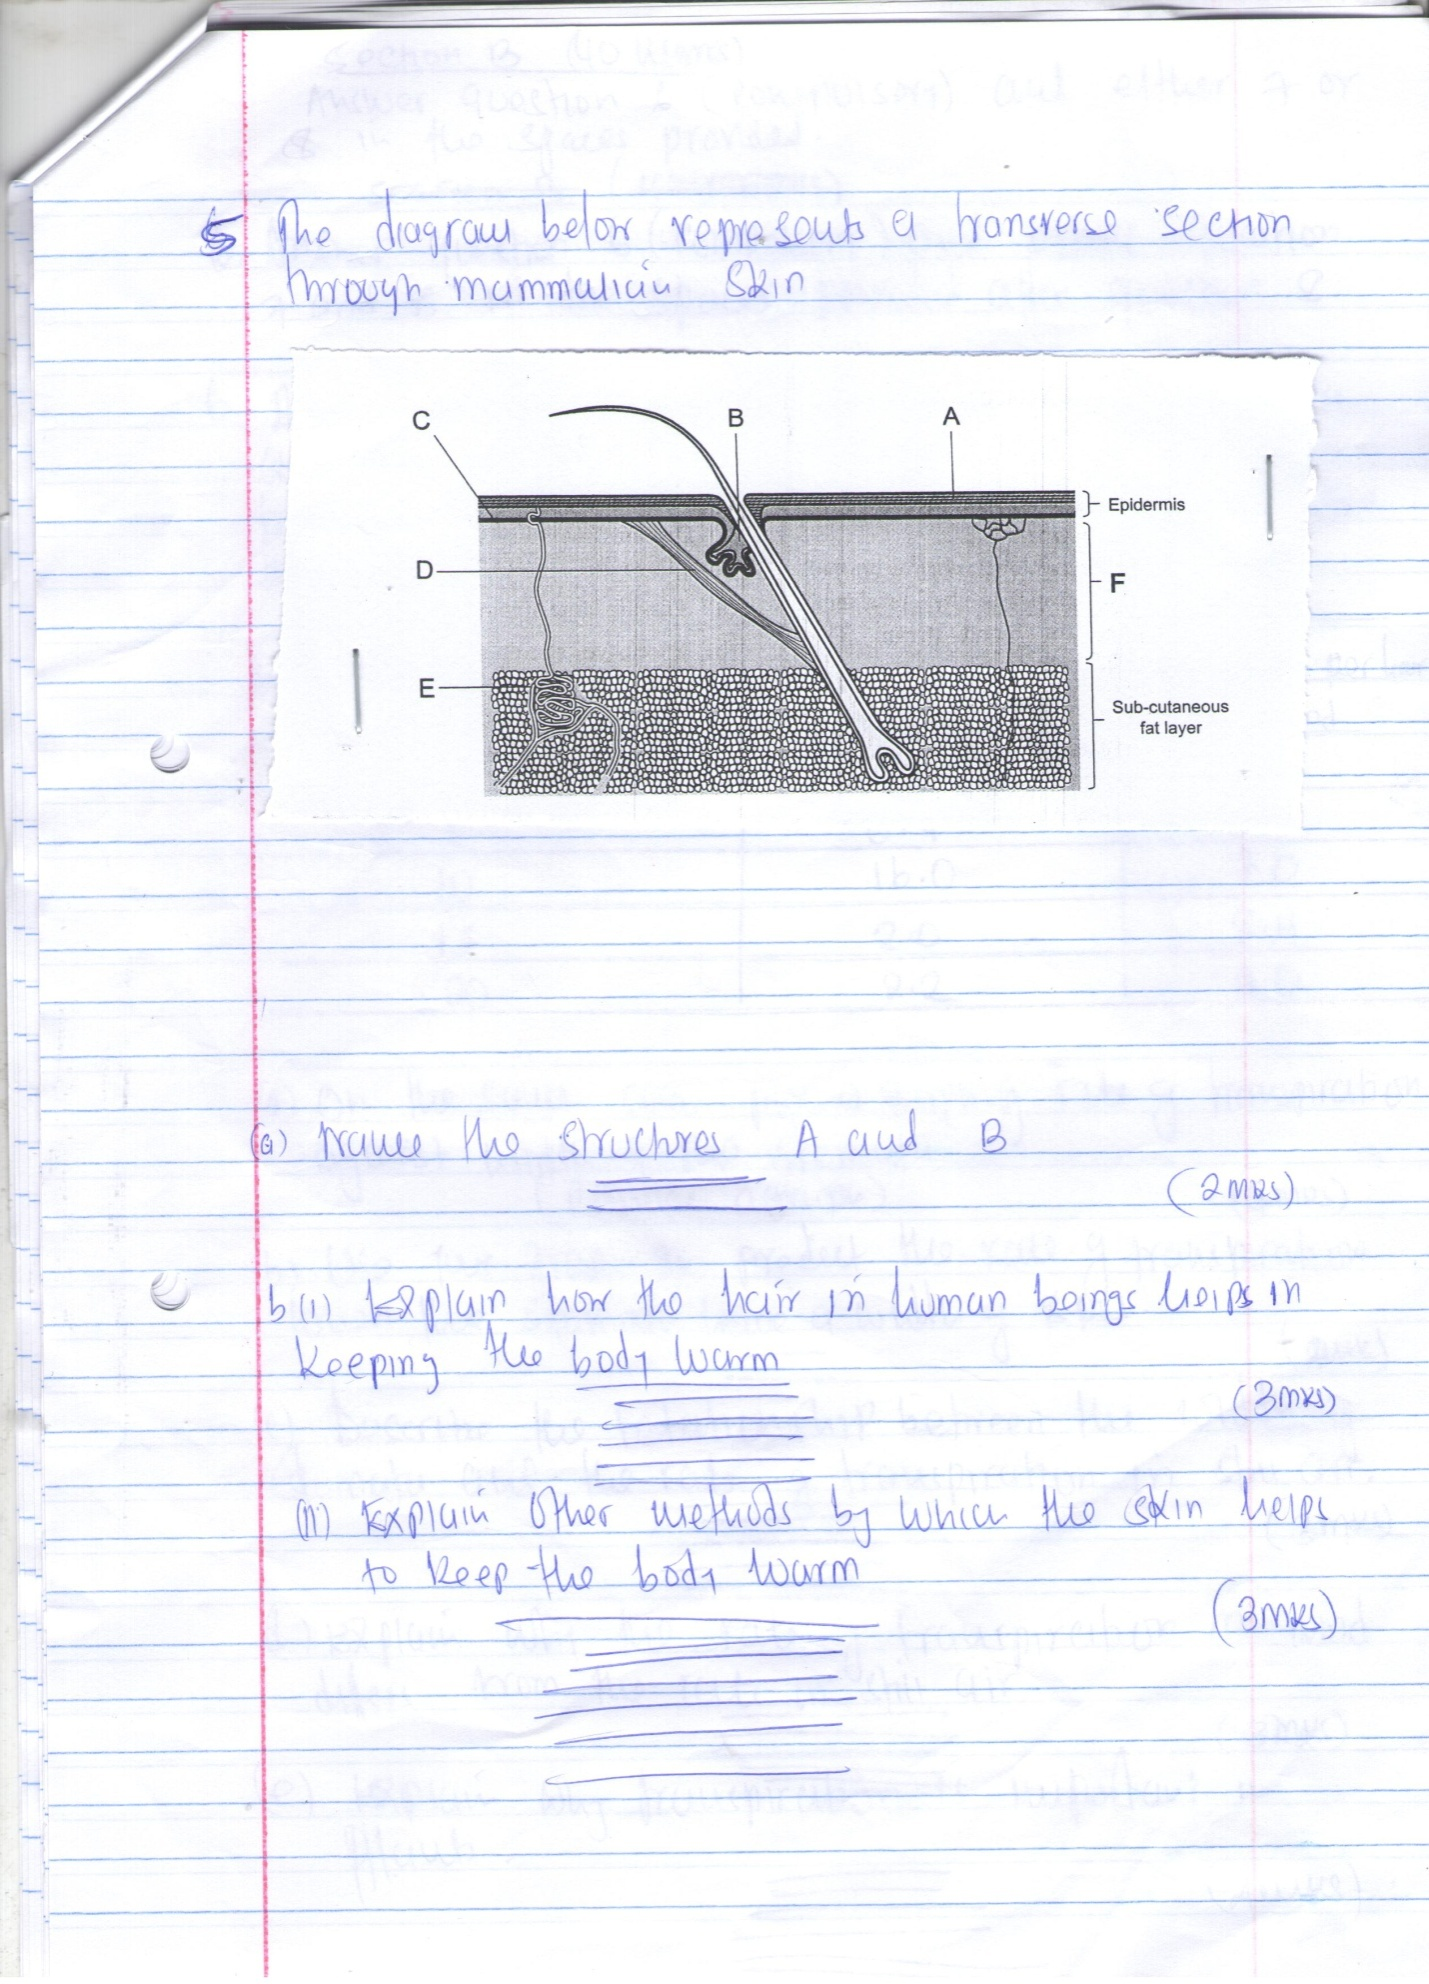 5 The diagram below represents a transverse section
through mammalian skin
C B A
Epidermis
D
F
E
Sub-cutaneous
fat layer
(a) Name the structures A and B
(2mks)
b (i) Explain how the hair in human beings helps in
keeping the body warm
(3mks)
(ii) Explain other methods by which the skin helps
to keep the body warm
(3mks)